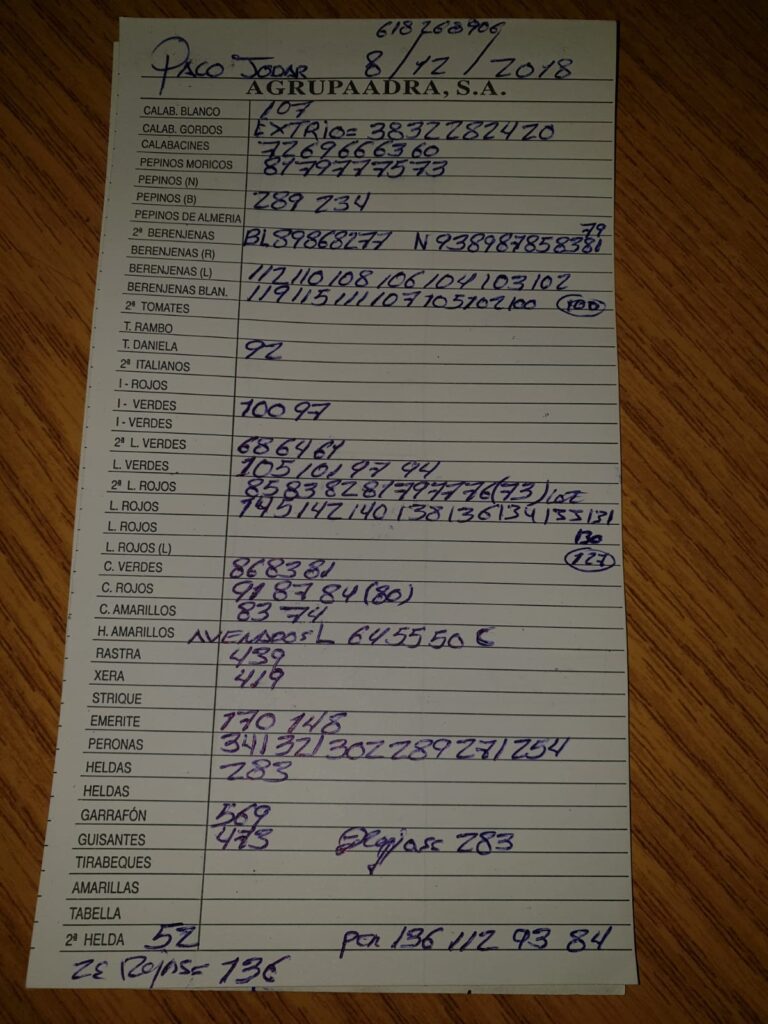 618268906
PACO JODAR 8/12/2018
AGRUPAADRA, S.A.
CALAB. BLANCO 107
CALAB. GORDOS EXTRIO= 3832282420
CALABACINES 7269666360
PEPINOS MORICOS 8179777573
PEPINOS (N)
PEPINOS (B) 289 234
PEPINOS DE ALMERIA
79
2ª BERENJENAS BL89868277 N 938987858381
BERENJENAS (R)
BERENJENAS (L) 112 110 108 106 104 103 102
BERENJENAS BLAN. 119 115 111 107 105 102 100 100
2ª TOMATES
T. RAMBO
T. DANIELA 92
2ª ITALIANOS
I - ROJOS
I - VERDES 100 97
I - VERDES
2ª L. VERDES 68 64 61
L. VERDES 105 101 97 94
2ª L. ROJOS 85838281797776(73)
L. ROJOS 145 142 140 138 136 134 133 131
L. ROJOS 130
L. ROJOS (L) 127
C. VERDES 868381
C. ROJOS 91 87 84 (80)
C. AMARILLOS 83 74
H. AMARILLOS L 645550
RASTRA 439
XERA 419
STRIQUE
EMERITE 170 148
PERONAS 341 321 302 289 271 254
HELDAS 283
HELDAS
GARRAFÓN 569
GUISANTES 473 283
TIRABEQUES
AMARILLAS
TABELLA
2ª HELDA 52 per 136 112 93 84
Rojas= 136